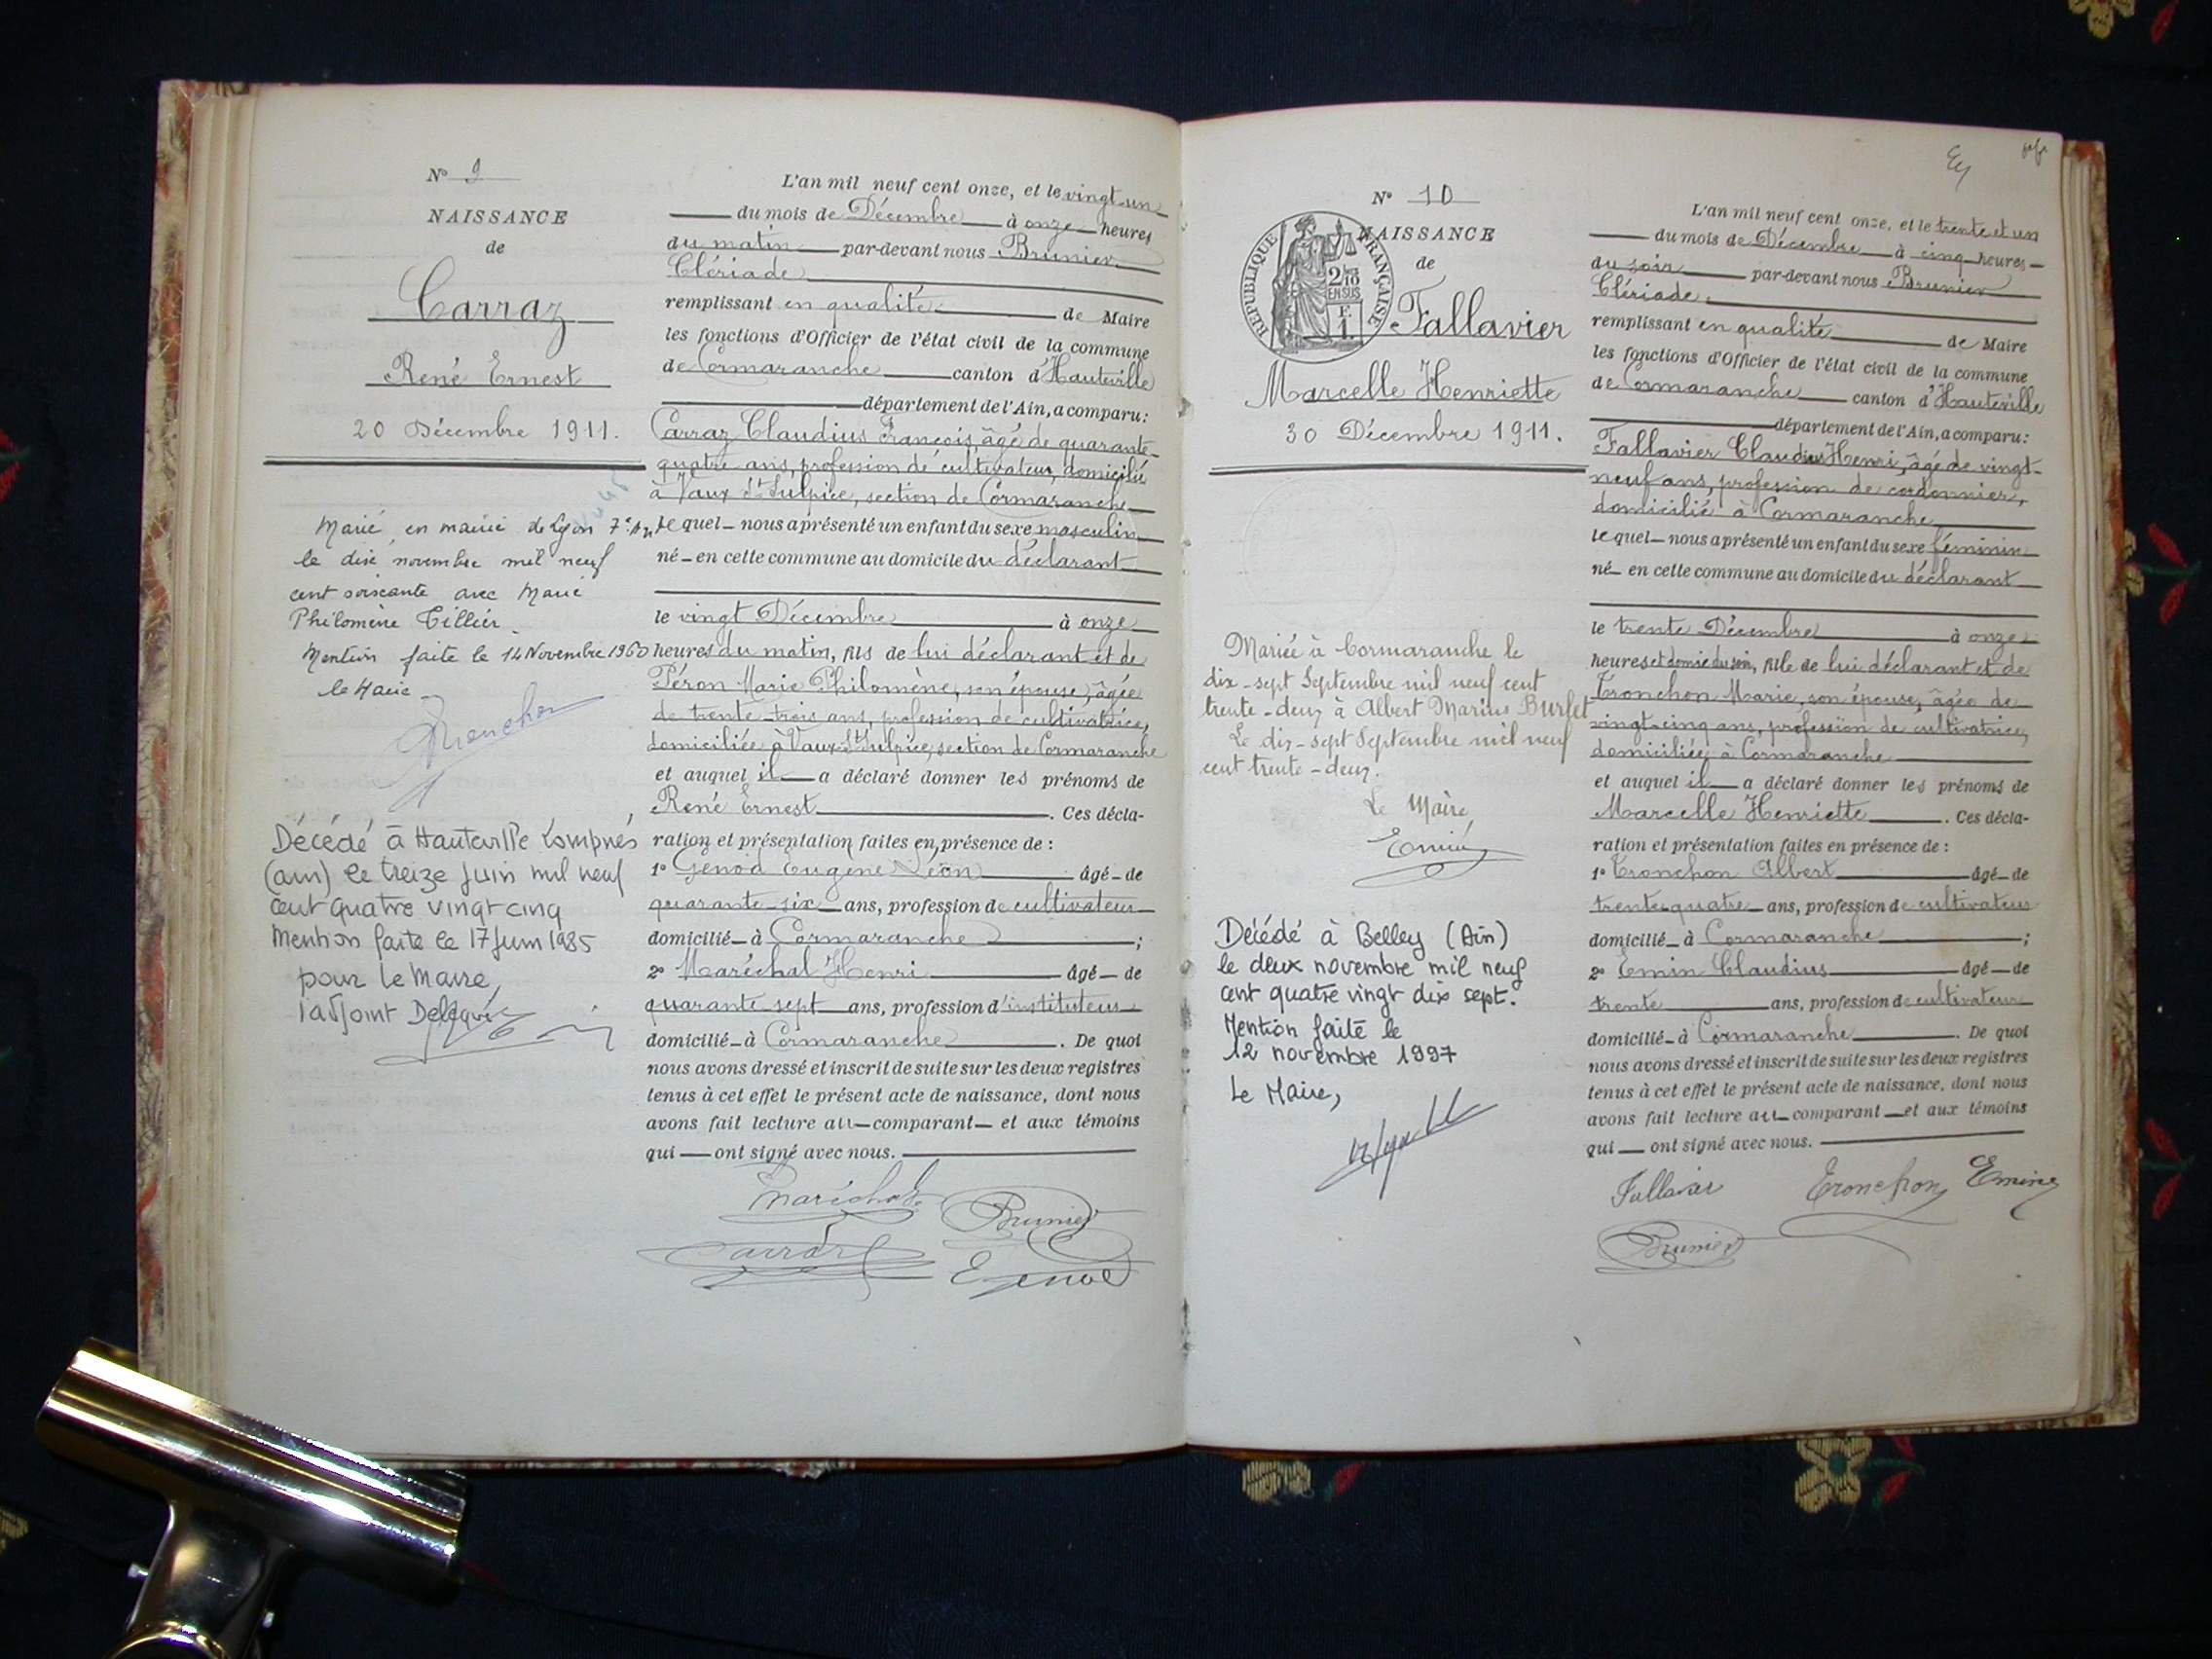 N° 9
NAISSANCE
de
Carraz
René Ernest
20 Décembre 1911.
Marié en mairie de Lyon 7e Ar
le dix novembre mil neuf
cent soixante avec Marie
Philomène Tillier.
Mention faite le 14 Novembre 1960
le Maire
Tronchon
Décédé à Hauteville Lompnes
(ain) le treize juin mil neuf
cent quatre vingt cinq
mention faite le 17 juin 1985
pour le Maire,
l'adjoint
L'an mil neuf cent onze, et le vingt-un
du mois de Décembre à onze heures
du matin par-devant nous Brunier
Clériade
remplissant en qualité de Maire
les fonctions d'Officier de l'état civil de la commune
de Cormaranche canton d'Hauteville
département de l'Ain, a comparu:
Carraz Claudius François, âgé de quarante-
quatre ans, profession de cultivateur, domicilié
à Vaux St Sulpice, section de Cormaranche
lequel nous a présenté un enfant du sexe masculin
né en cette commune au domicile du déclarant
le vingt Décembre à onze
heures du matin, fils de lui déclarant et de
Péron Marie Philomène, son épouse, âgée
de trente-trois ans, profession de cultivatrice,
domiciliée à Vaux St Sulpice, section de Cormaranche
et auquel il a déclaré donner les prénoms de
René Ernest. Ces décla-
ration et présentation faites en présence de :
1° Genod Eugène Léon âgé de
quarante-six ans, profession de cultivateur
domicilié à Cormaranche ;
2° Maréchal Henri âgé de
quarante-sept ans, profession d'instituteur
domicilié à Cormaranche. De quoi
nous avons dressé et inscrit de suite sur les deux registres
tenus à cet effet le présent acte de naissance, dont nous
avons fait lecture au comparant et aux témoins
qui ont signé avec nous.
Maréchal
Brunier
Carraz
E Genod
N° 10
NAISSANCE
de
RÉPUBLIQUE FRANÇAISE
2/10
EN SUS
F.
1.
Fallavier
Marcelle Henriette
30 Décembre 1911.
Mariée à Cormaranche le
dix-sept Septembre mil neuf cent
trente-deux à Albert Marius Burlet
Le dix-sept Septembre mil neuf
cent trente-deux.
Le Maire,
Emin
Décédé à Belley (Ain)
le deux novembre mil neuf
cent quatre vingt dix sept.
Mention faite le
12 novembre 1997
Le Maire,
L'an mil neuf cent onze, et le trente et un
du mois de Décembre à cinq heures
du soir par-devant nous Brunier
Clériade,
remplissant en qualité de Maire
les fonctions d'Officier de l'état civil de la commune
de Cormaranche canton d'Hauteville
département de l'Ain, a comparu:
Fallavier Claudius Henri, âgé de vingt-
neuf ans, profession de cordonnier,
domicilié à Cormaranche
lequel nous a présenté un enfant du sexe féminin
né en cette commune au domicile du déclarant
le trente Décembre à onze
heures et demie du soir, fille de lui déclarant et de
Tronchon Marie, son épouse, âgée de
vingt-cinq ans, profession de cultivatrice,
domiciliée à Cormaranche
et auquel il a déclaré donner les prénoms de
Marcelle Henriette. Ces décla-
ration et présentation faites en présence de :
1° Tronchon Albert âgé de
trente-quatre ans, profession de cultivateur
domicilié à Cormaranche ;
2° Emin Claudius âgé de
trente ans, profession de cultivateur
domicilié à Cormaranche. De quoi
nous avons dressé et inscrit de suite sur les deux registres
tenus à cet effet le présent acte de naissance, dont nous
avons fait lecture au comparant et aux témoins
qui ont signé avec nous.
Fallavier
Tronchon
Emin
Brunier